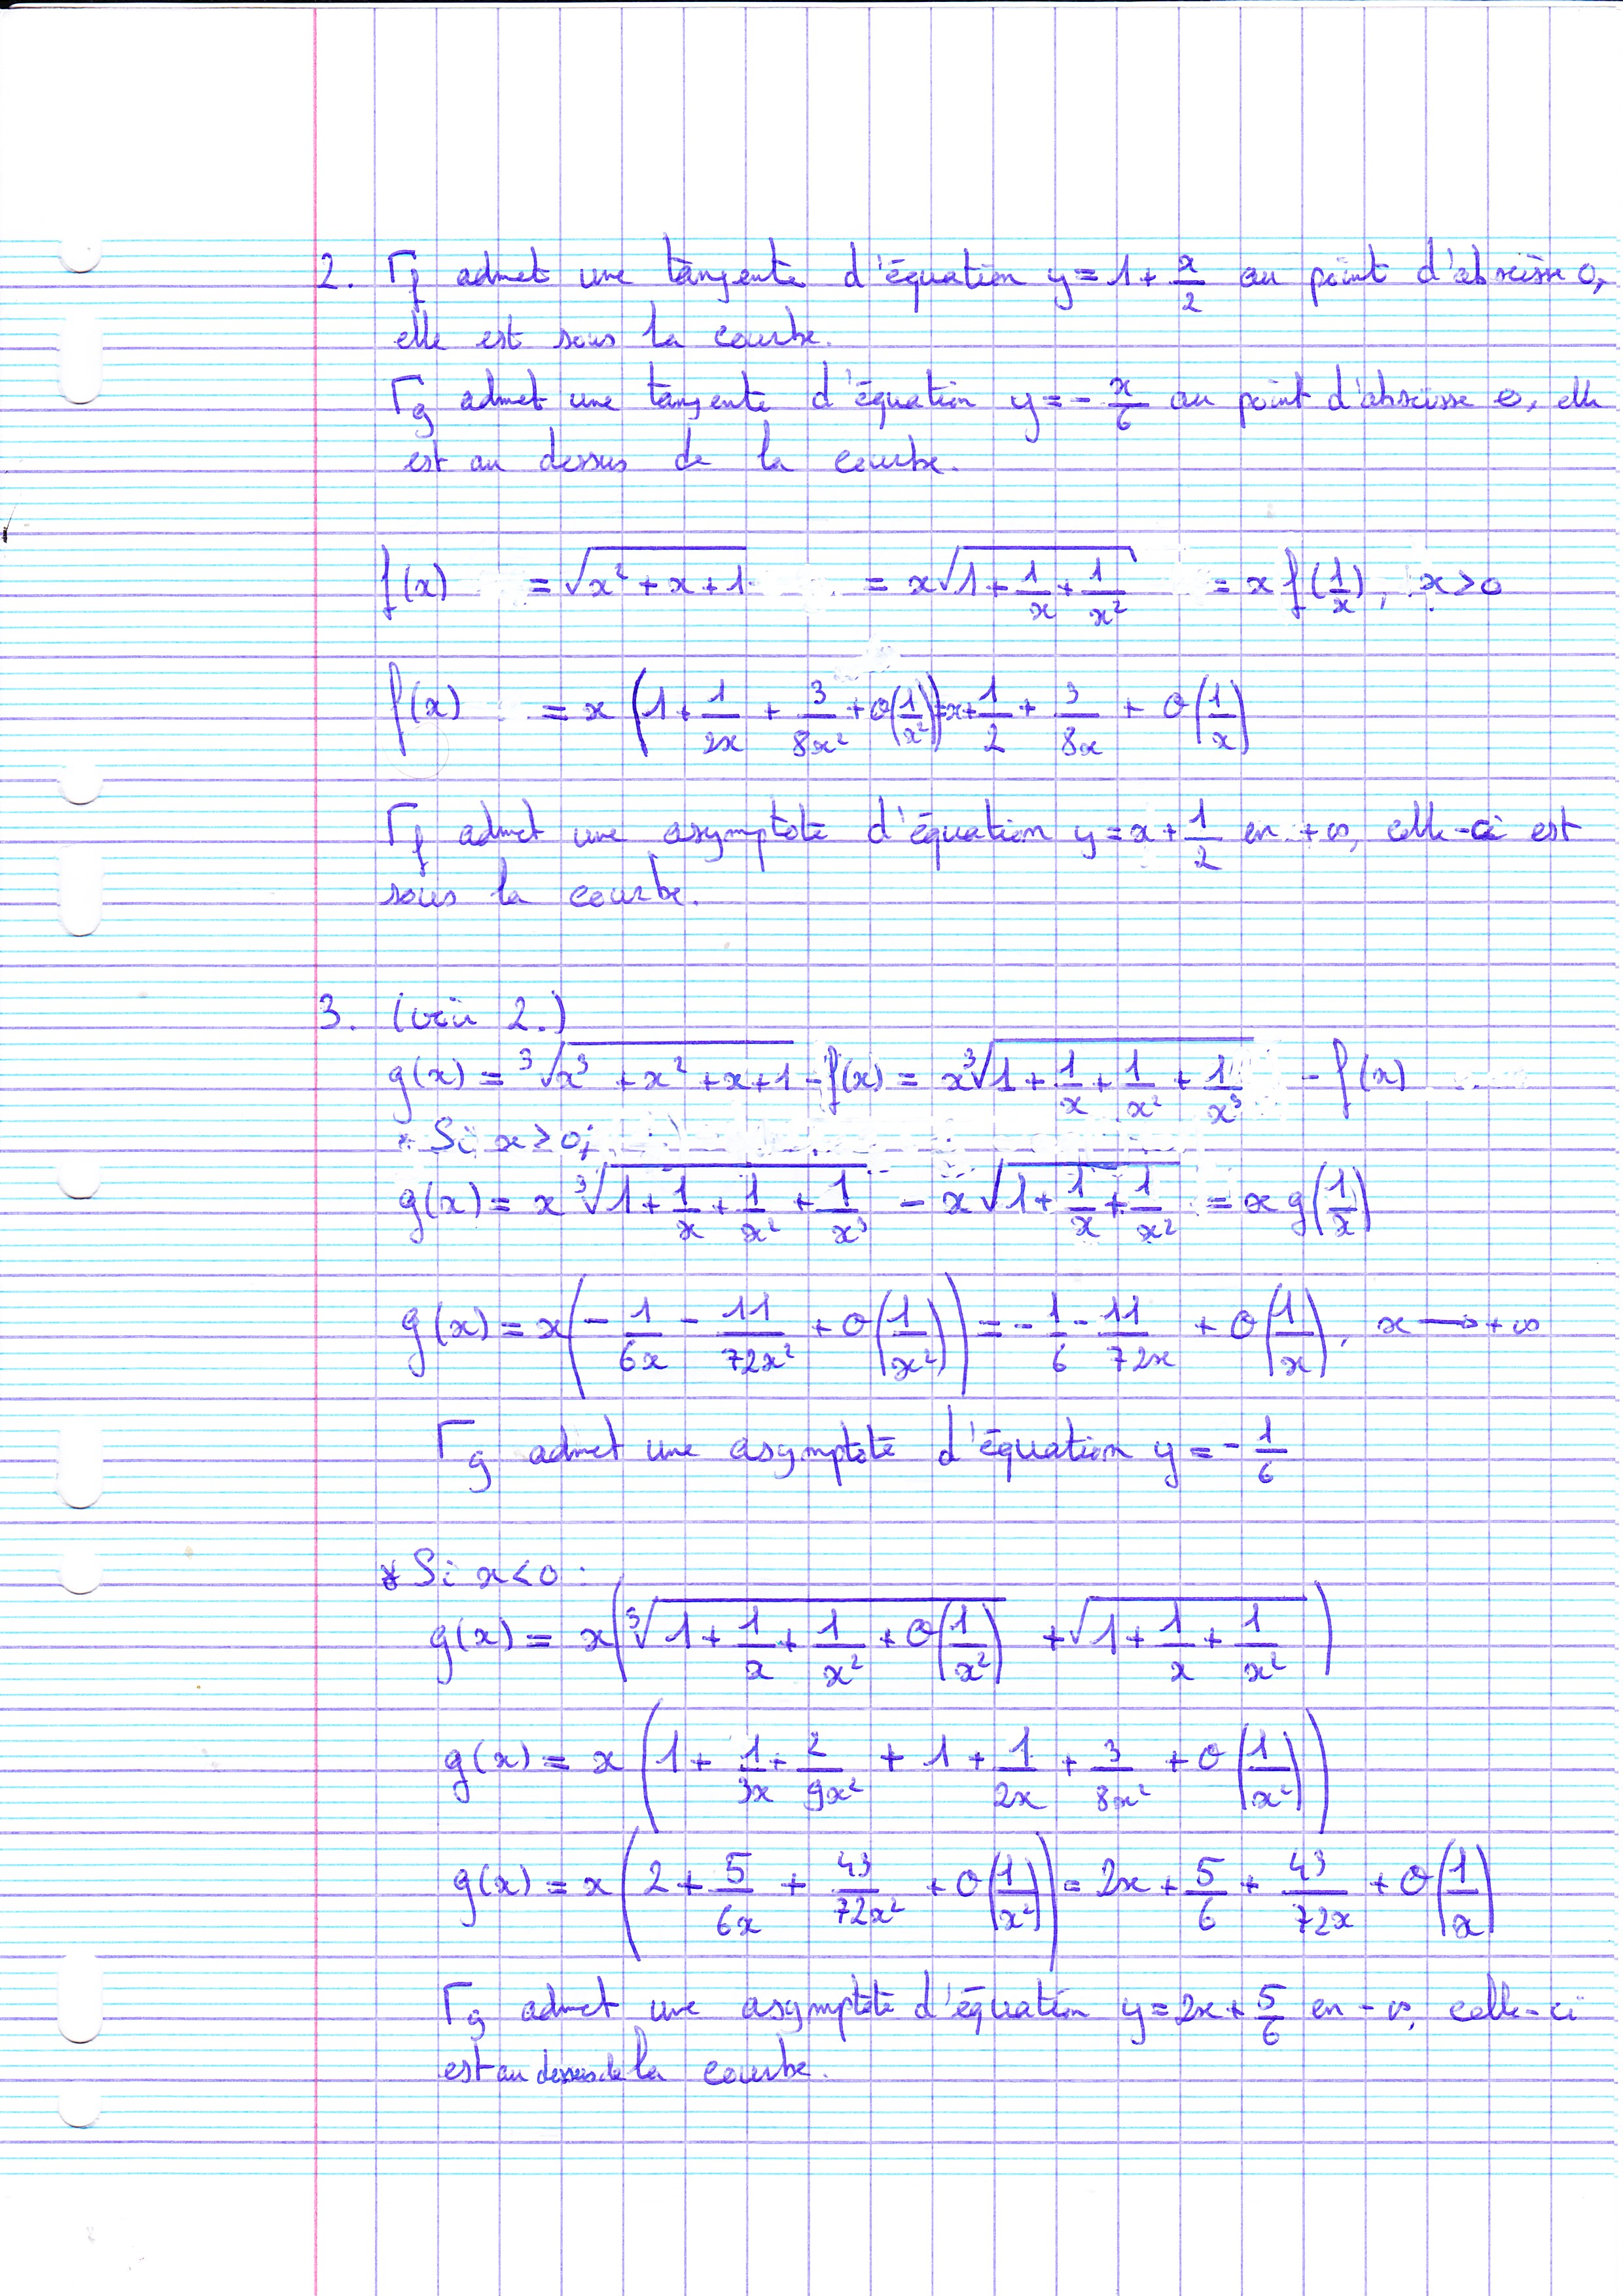 2. Γf admet une tangente d'équation y = 1 + x/2 au point d'abscisse 0,
elle est sous la courbe.
Γg admet une tangente d'équation y = - x/6 au point d'abscisse 0, elle
est au dessus de la courbe.
f(x) = √(x² + x + 1) = x√(1 + 1/x + 1/x²) = x f(1/x), x > 0
f(x) = x (1 + 1/2x + 3/8x² + o(1/x²)) = x + 1/2 + 3/8x + o(1/x)
Γf admet une asymptote d'équation y = x + 1/2 en +∞, celle-ci est
sous la courbe.
3. (voir 2.)
g(x) = ³√(x³ + x² + x + 1) - f(x) = x ³√(1 + 1/x + 1/x² + 1/x³) - f(x)
* Si x ≥ 0;
g(x) = x ³√(1 + 1/x + 1/x² + 1/x³) - x √(1 + 1/x + 1/x²) = x g(1/x)
g(x) = x (- 1/6x - 11/72x² + o(1/x²)) = - 1/6 - 11/72x + o(1/x), x ⟶ +∞
Γg admet une asymptote d'équation y = - 1/6
* Si x < 0 :
g(x) = x (³√(1 + 1/x + 1/x² + o(1/x²)) + √(1 + 1/x + 1/x²))
g(x) = x (1 + 1/3x + 2/9x² + 1 + 1/2x + 3/8x² + o(1/x²))
g(x) = x (2 + 5/6x + 43/72x² + o(1/x²)) = 2x + 5/6 + 43/72x + o(1/x)
Γg admet une asymptote d'équation y = 2x + 5/6 en -∞, celle-ci
est au dessus de la courbe.